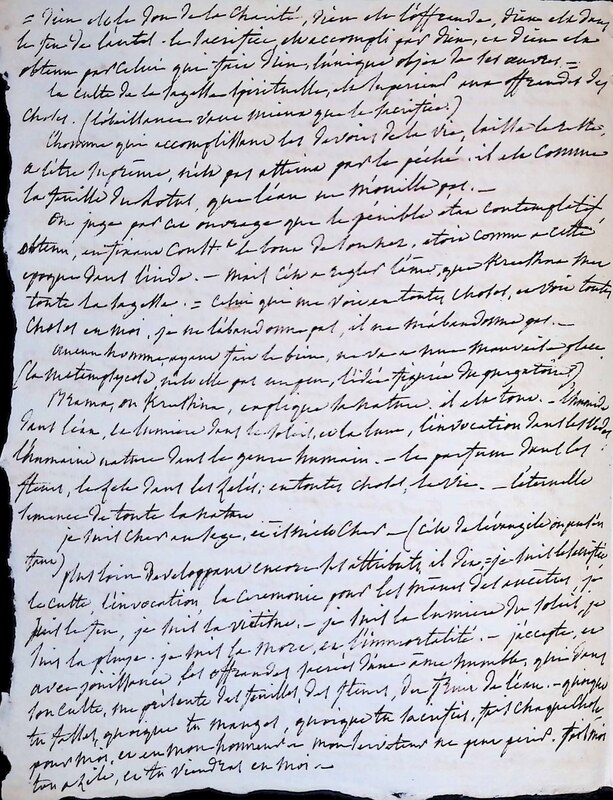 = Dieu est le don de la Charité, Dieu est l'offrande, Dieu est dans
le feu de l'autel. le Sacrifice est accompli par Dieu, et Dieu est
obtenu par Celui qui fait Dieu, l'unique objet de ses œuvres =
le culte de la Sagesse Spirituelle, est Supérieur aux offrandes des
Choses. (l'obéissance vaut mieux que le Sacrifice.)
l'homme qui accomplissant les devoirs de la vie, laisse le reste
a l'être Suprême, n'est pas atteint par le péché. il est Comme
la feuille du lotus, que l'eau ne mouille pas. —
On juge par cet ouvrage que le pénible état Contemplatif,
obtenu, en fixant le bout de son nez, étoit Connu a cette
époque dans l'inde. — Mais c'est a régler l'âme, que Kreshna met
toute la Sagesse. = Celui qui me voit en toutes Choses, et voit toutes
Choses en moi, je ne l'abandonne pas, il ne m'abandonne pas. —
aucun homme, ayant fait le bien, ne va a une mauvaise place,
(la métempsycose, n'est elle pas un peu, l'idée figurée du purgatoire)
Brama, ou Kreshna, explique la nature. il est tout. — l'humidité
dans l'eau, la lumière dans le Soleil, et la lune, l'invocation dans les Vedes
l'humaine nature dans le genre humain. — le parfum dans les
fleurs, le Zele dans les Zelés; en toutes choses, la vie. — l'éternelle
Semence de toute la nature
je suis cher au Sage, et il m'est Cher — (
) plus loin Developpant encore ses attributs, il dit = je suis le Sacrifice
le culte, l'invocation, la Ceremonie pour les mânes des ancêtres, je
suis le feu, je suis la victime. — je suis la lumiere du Soleil, je
suis la pluye. je suis la mort, et l'immortalité. — j'accepte, et
avec jouissance, les offrandes d'une âme humble, qui dans
son Culte, me présente des feuilles, des fleurs, du fruit de l'eau. — quoique
tu fasses, quoique tu manges, quoique tu Sacrifies, fais chaque chose
pour moi, et en mon honneur. mon serviteur ne peut périr. fais moi
ton Zele, et tu viendras en moi —